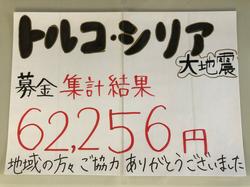 トルコ・シリア
大地震
募金 集計結果
62,256円
地域の方々 ご協力 ありがとうございました